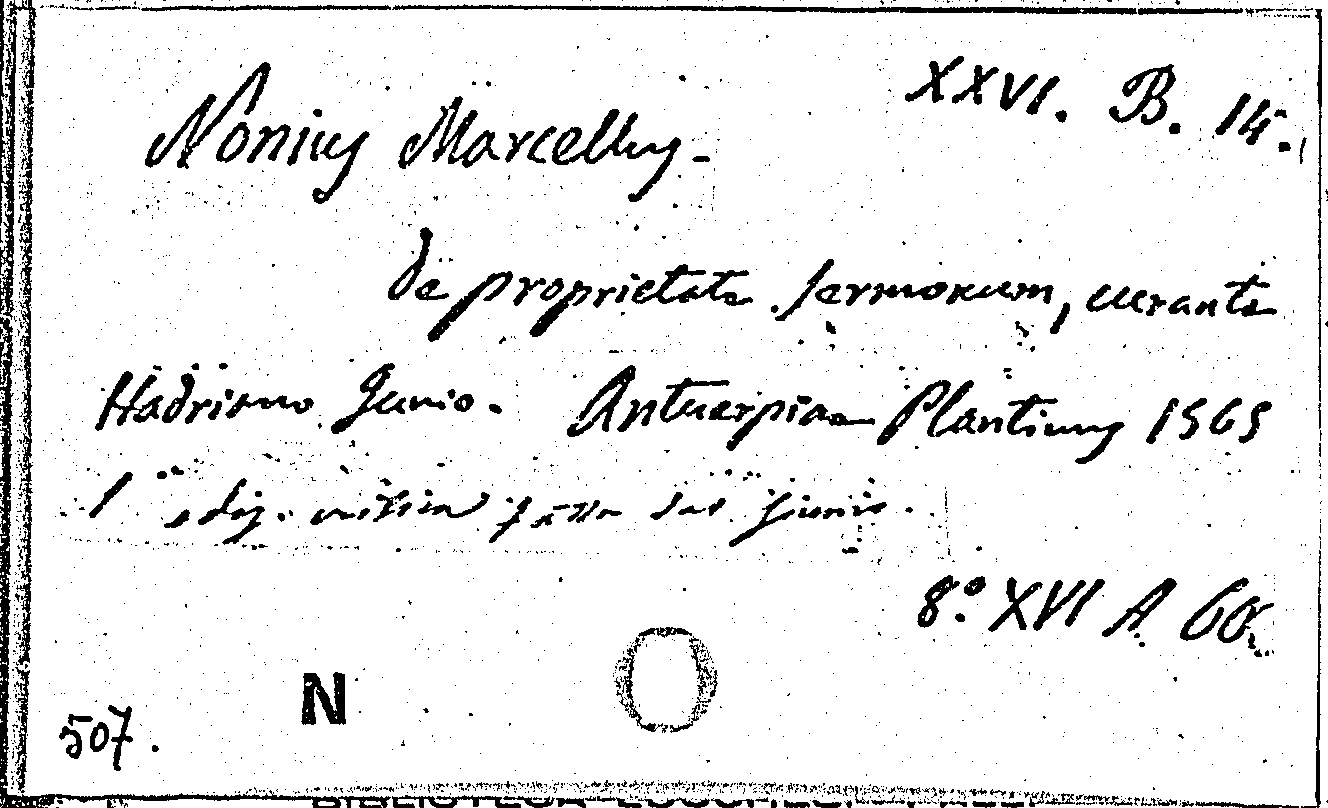 XXVI. B. 14.
Nonius Marcellus.
De proprietate sermonum, curante
Hadriano Junio. Antuerpiae Plantinus 1565
1ª ediz. critica fatta dal Junio.
8.º XVI A 66.
N O
507.